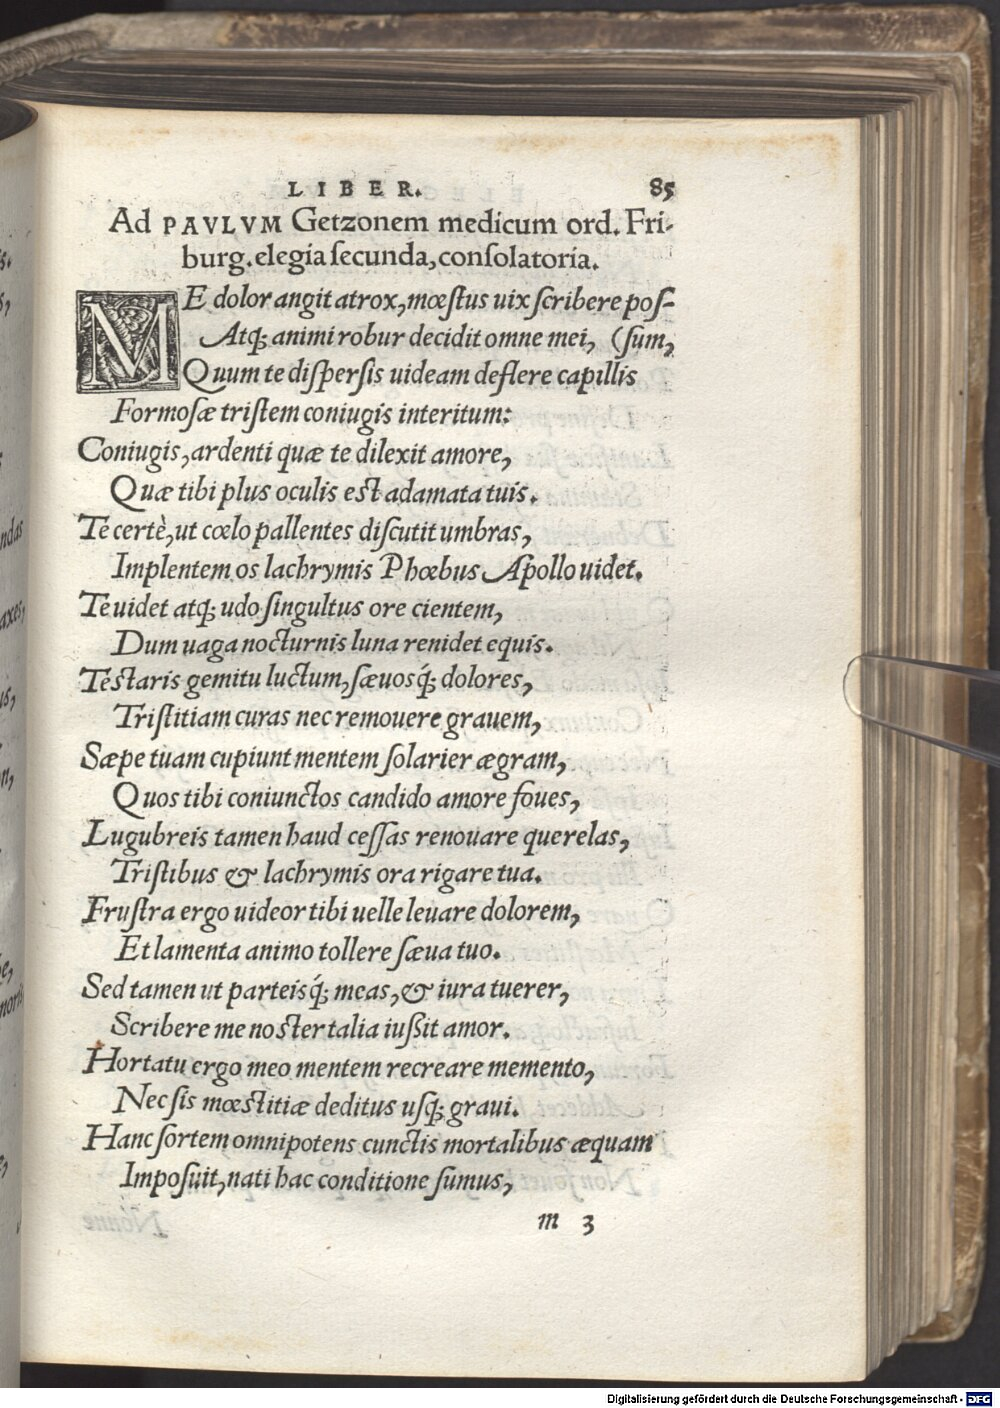 LIBER. 85
Ad PAVLVM Getzonem medicum ord. Fri-
burg. elegia ſecunda, conſolatoria.
ME dolor angit atrox, mœſtus uix ſcribere poſ-
Atq; animi robur decidit omne mei, (ſum,
Quum te diſperſis uideam deflere capillis
Formoſæ triſtem coniugis interitum:
Coniugis, ardenti quæ te dilexit amore,
Quæ tibi plus oculis eſt adamata tuis.
Te certè, ut cœlo pallentes diſcutit umbras,
Implentem os lachrymis Phœbus Apollo uidet.
Te uidet atq; udo ſingultus ore cientem,
Dum uaga nocturnis luna renidet equis.
Teſtaris gemitu luctum, ſæuosq́; dolores,
Triſtitiam curas nec remouere grauem,
Sæpe tuam cupiunt mentem ſolarier ægram,
Quos tibi coniunctos candido amore foues,
Lugubreis tamen haud ceſſas renouare querelas,
Triſtibus & lachrymis ora rigare tua.
Fruſtra ergo uideor tibi uelle leuare dolorem,
Et lamenta animo tollere ſæua tuo.
Sed tamen ut parteisq́; meas, & iura tuerer,
Scribere me noſter talia iußit amor.
Hortatu ergo meo mentem recreare memento,
Nec ſis mœſtitiæ deditus uſq; graui.
Hanc ſortem omnipotens cunctis mortalibus æquam
Impoſuit, nati hac conditione ſumus,
m 3
Digitalisierung gefördert durch die Deutsche Forschungsgemeinschaft - DFG